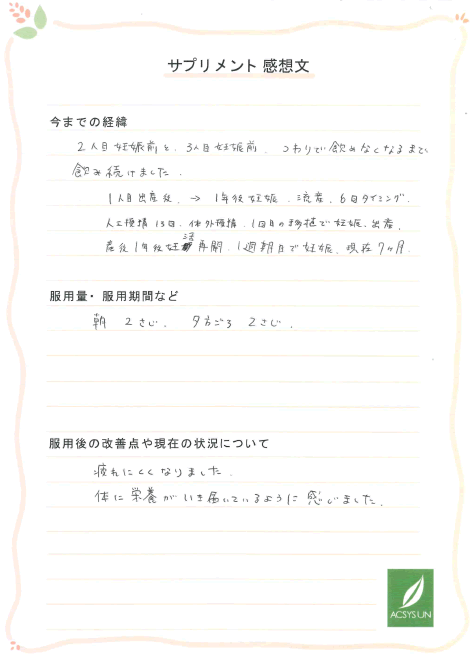 サプリメント 感想文
今までの経緯
2人目妊娠前と、3人目妊娠前、つわりで飲めなくなるまで
飲み続けました。
1人目出産後、→ 1年後妊娠、流産、6回タイミング、
人工授精 15回、体外授精、1回目の移植で妊娠、出産、
産後1年後妊活再開、1週期目で妊娠、現在7ヶ月。
服用量・服用期間など
朝 2さじ、夕方ごろ 2さじ。
服用後の改善点や現在の状況について
疲れにくくなりました。
体に栄養がいき届いているように感じました。
ACSYSUN